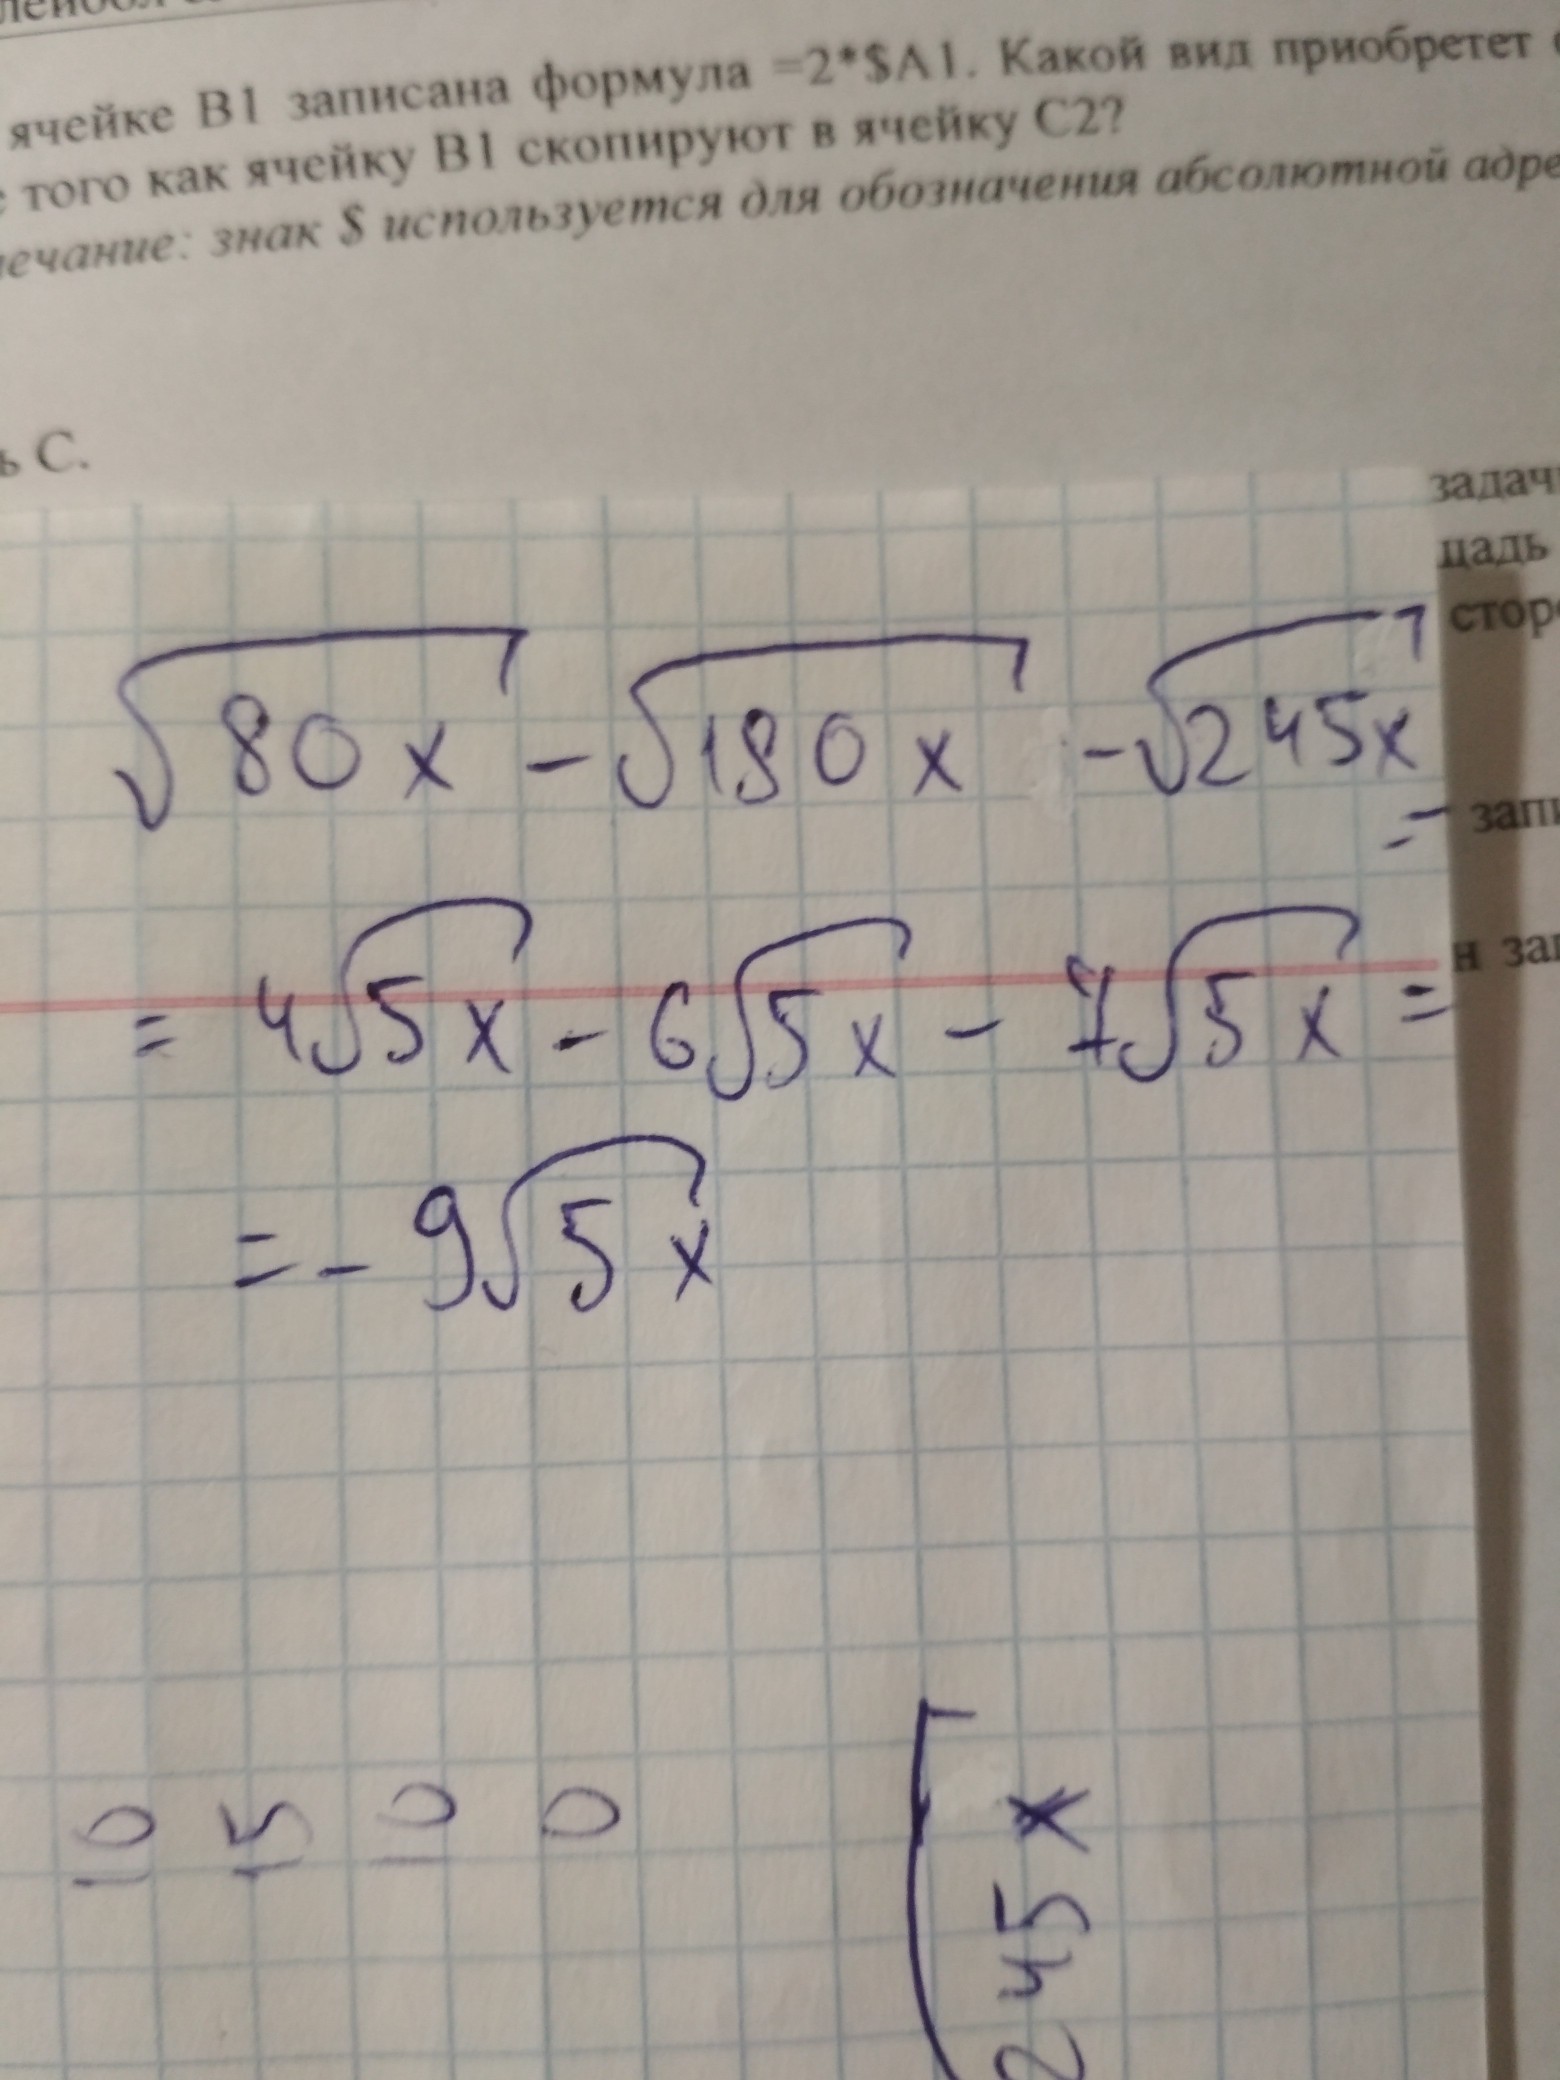 ячейке B1 записана формула =2*$A1. Какой вид приобретет
того как ячейку B1 скопируют в ячейку C2?
ечание: знак $ используется для обозначения абсолютной адре
ь C.
задач
щадь
стор
√80x - √180x - √245x =
запи
= 4√5x - 6√5x - 7√5x =
н за
= - 9√5x
10 15 10 0
245x